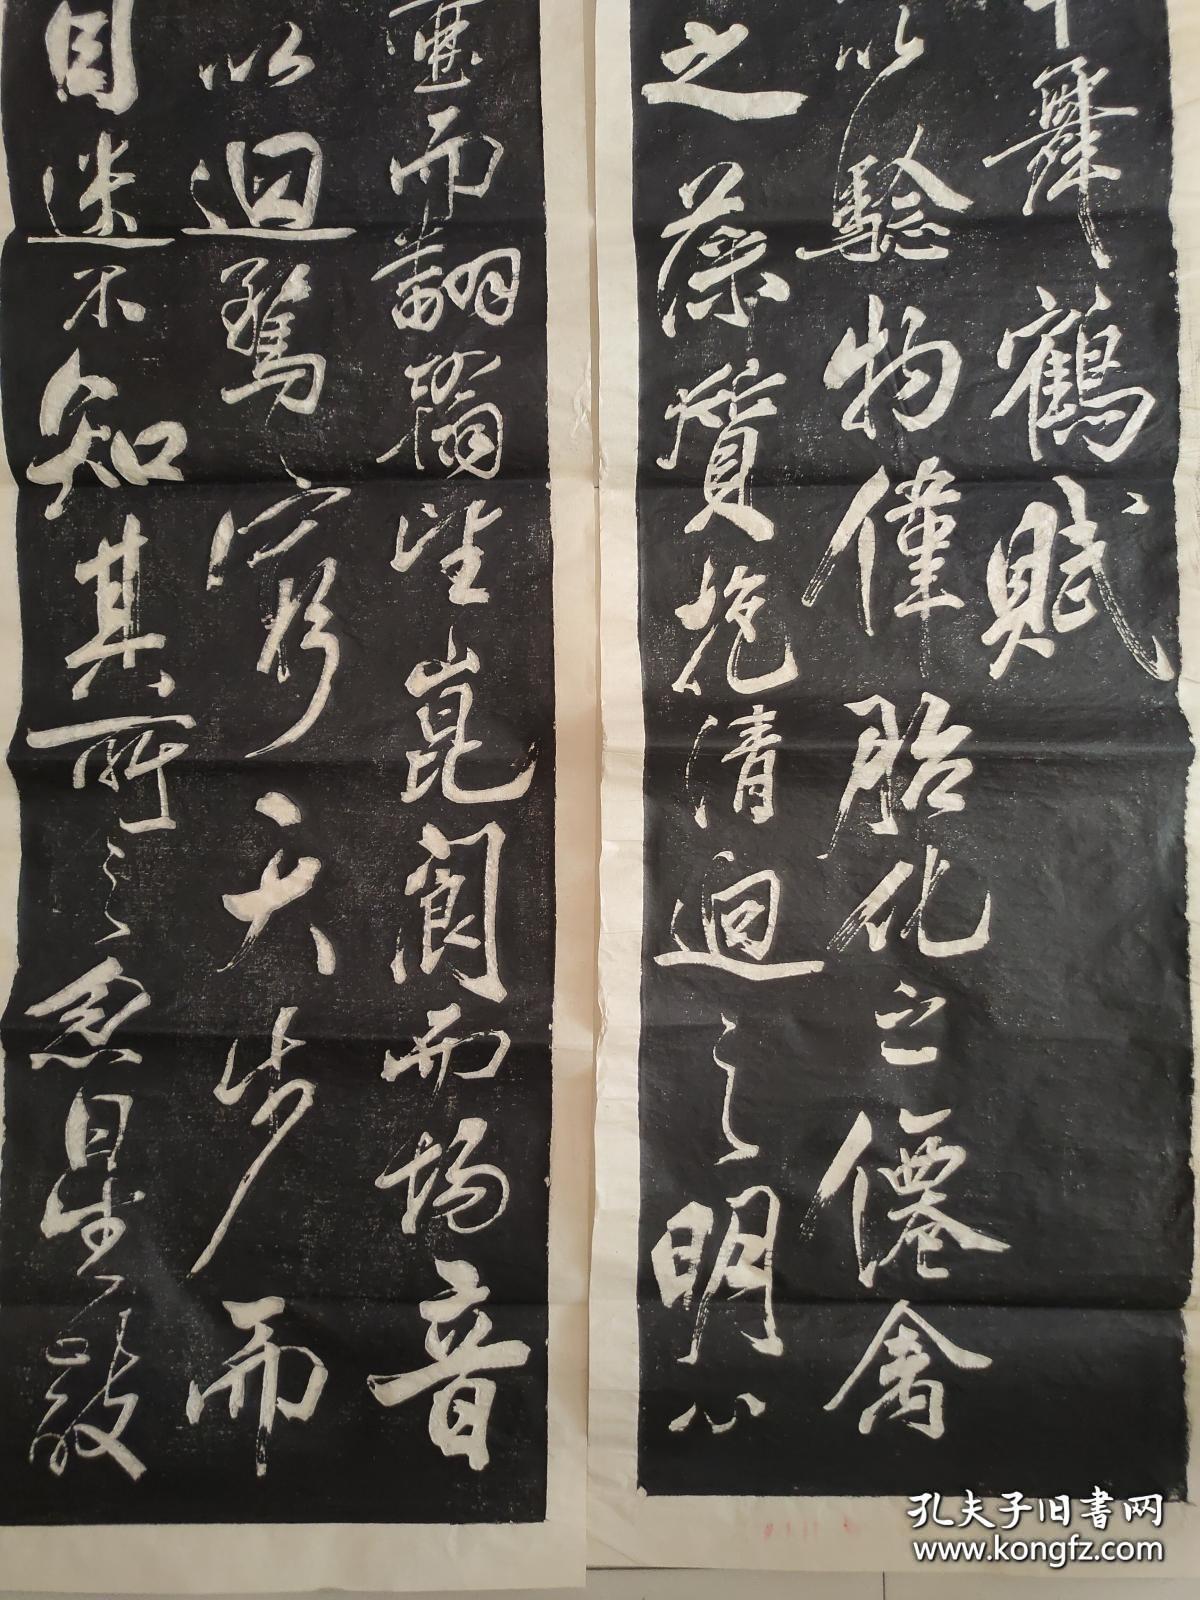 舞鶴賦
以驗物偉胎化之僊禽
之藻質抱清迥之明心
壺而翻翰望崑閬而揚音
以迴騖窮天步而
目迷不知其所之忽星離
孔夫子旧书网
www.kongfz.com